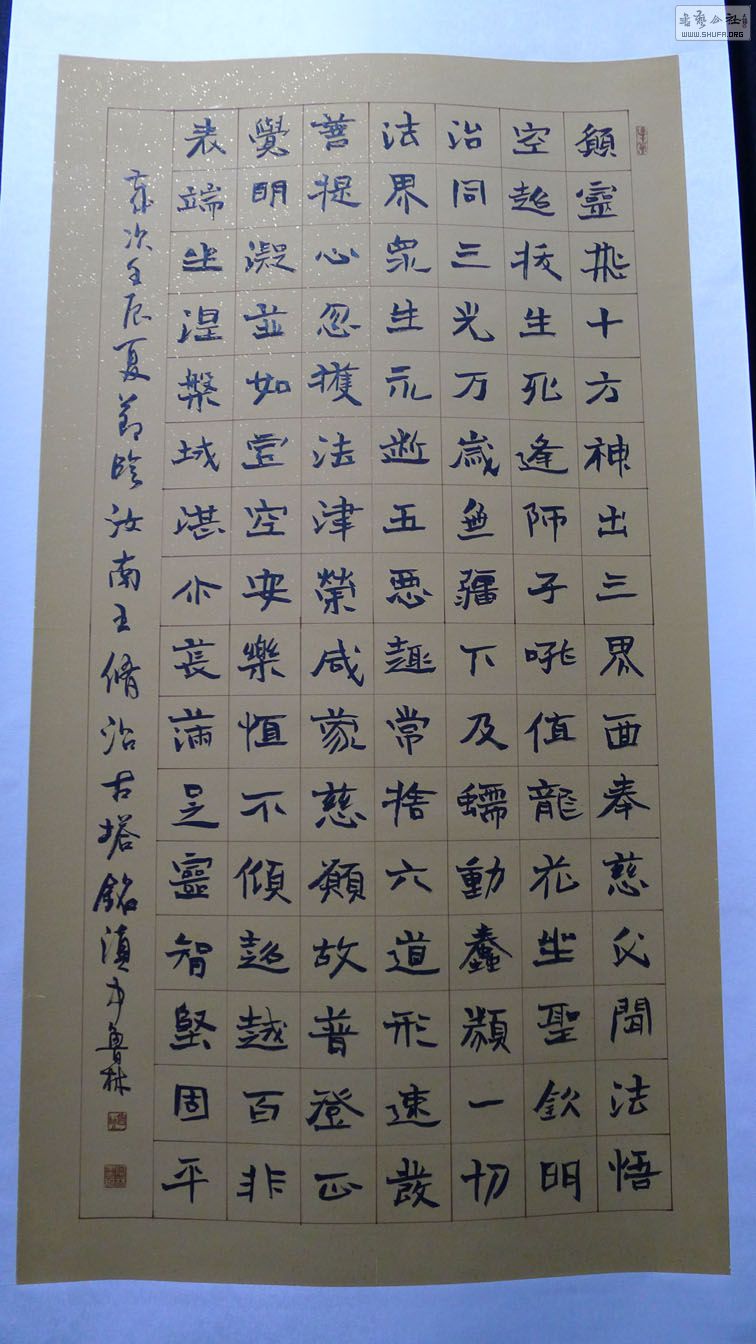 願靈飛十方神出三界面奉慈氏聞法悟
空超拔生死逢師子吼值龍花坐聖欽明
治同三光万歲無疆下及蠕動蠢類一切
法界衆生永斷五惡趣常捨六道形速發
菩提心忽獲法津榮咸蒙慈願故普登正
覺明凝並如虛空安樂恒不傾超越百非
表端坐涅槃城湛介萇滿足靈智堅固平
歲次壬辰夏節臨汝南王脩治古塔銘滇中魯林
WWW.SHUFA.ORG